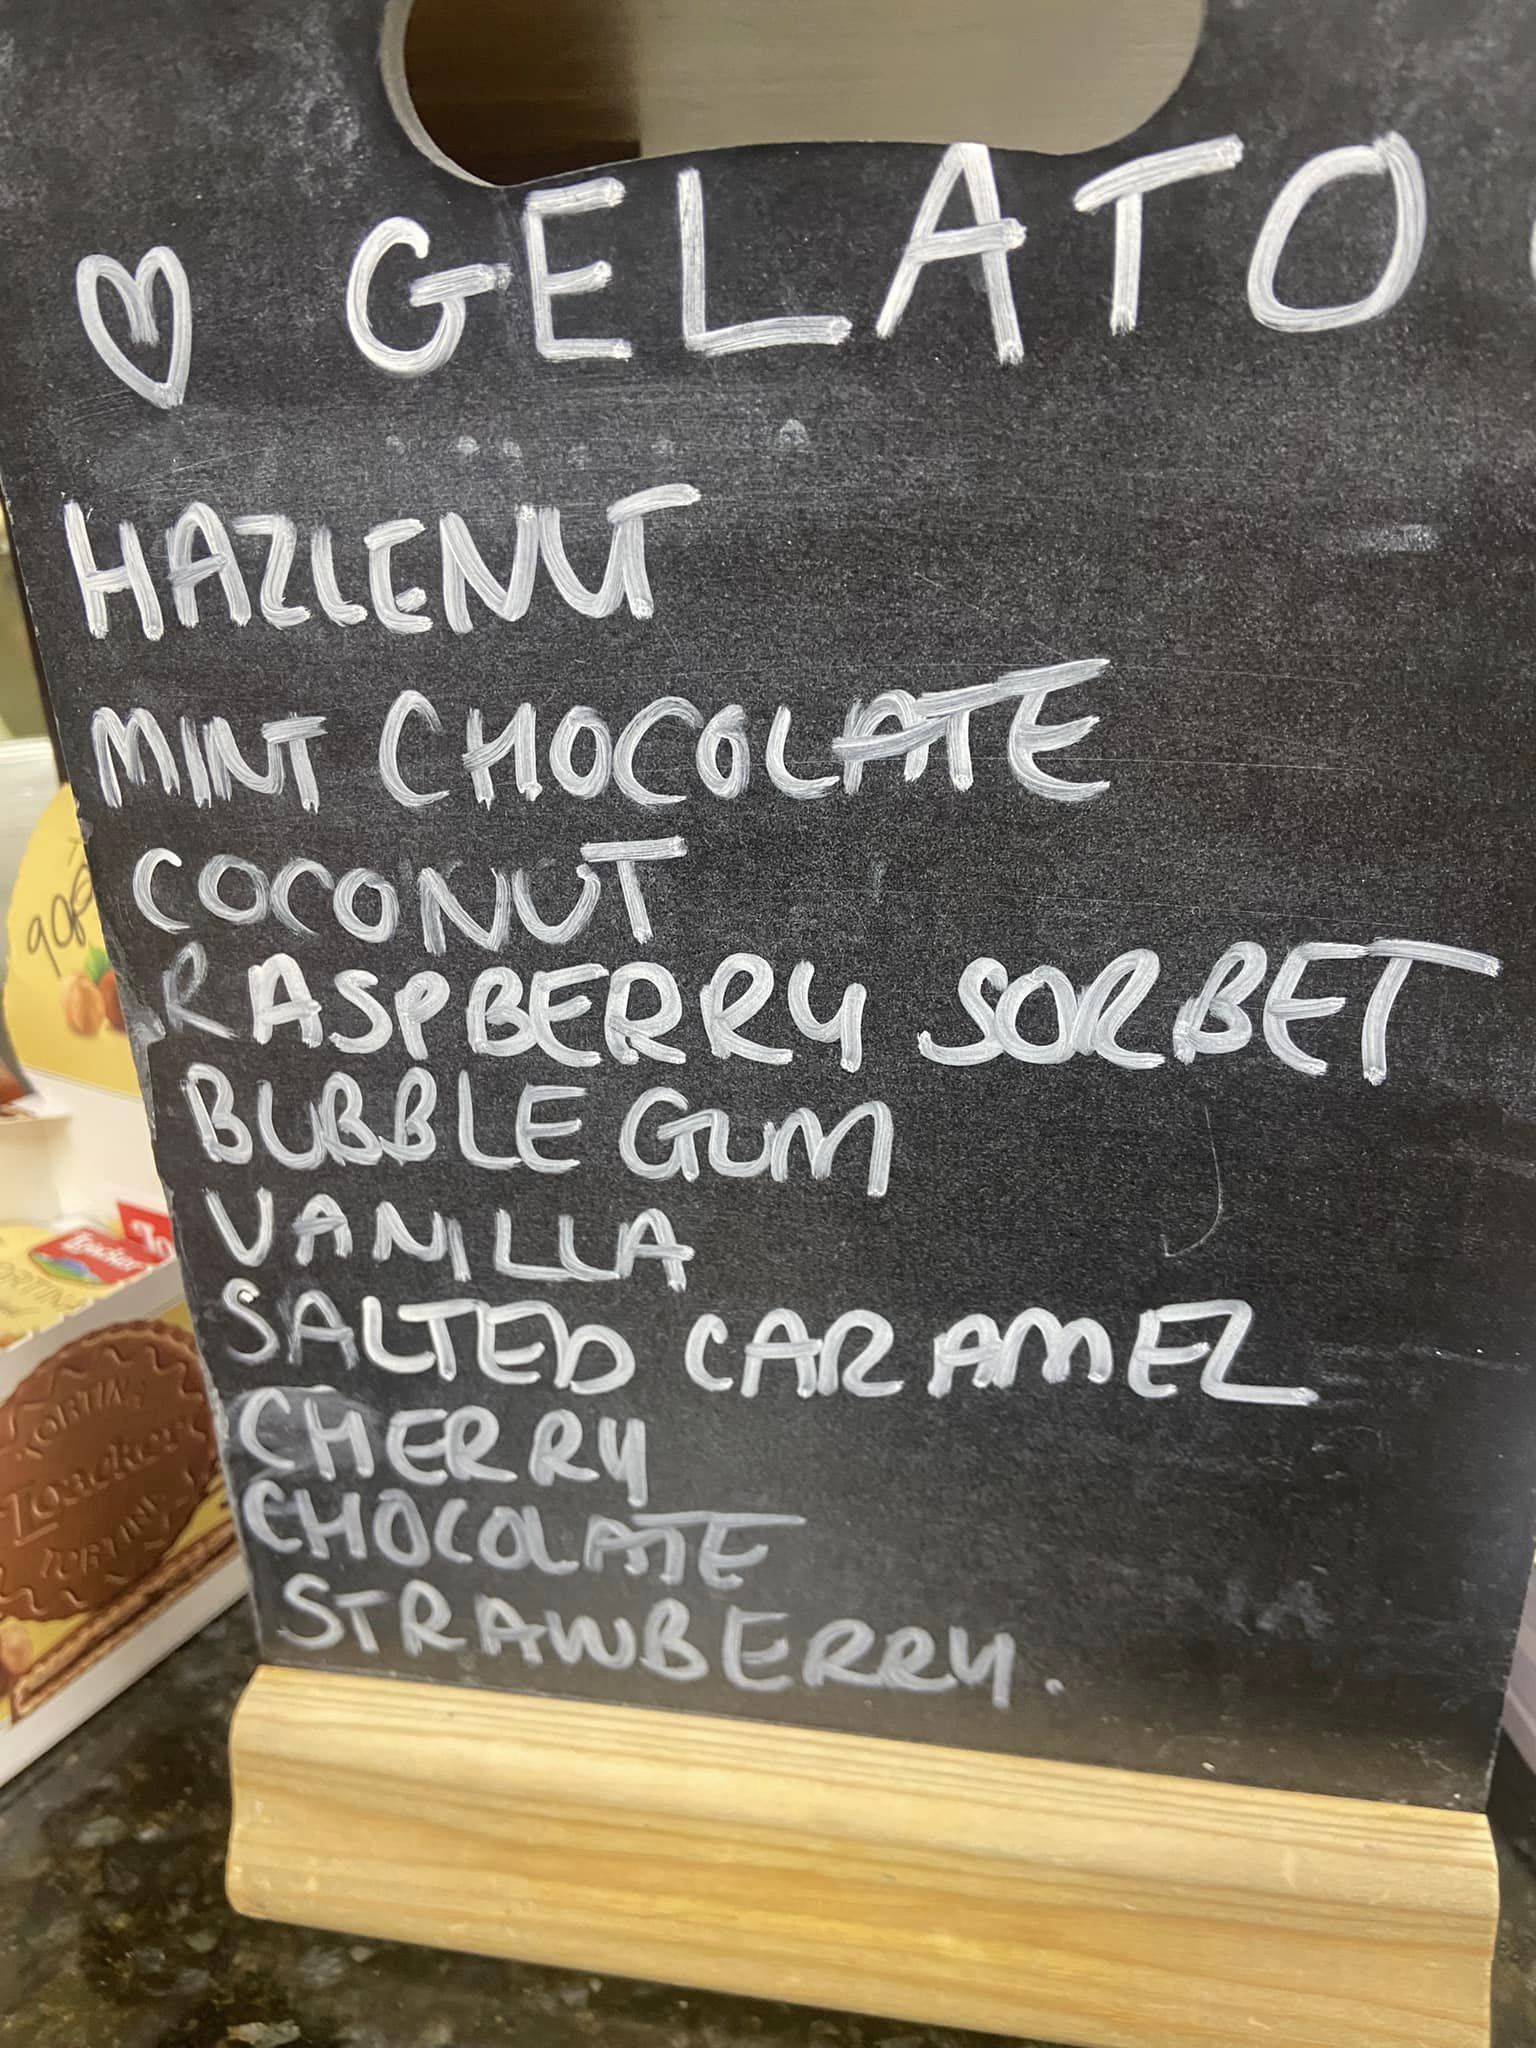 ♡ GELATO
HAZLENUT
MINT CHOCOLATE
COCONUT
RASPBERRY SORBET
BUBBLE GUM
VANILLA
SALTED CARAMEL
CHERRY
CHOCOLATE
STRAWBERRY.
Loacker
TORTINA
Loacker
TORTINA